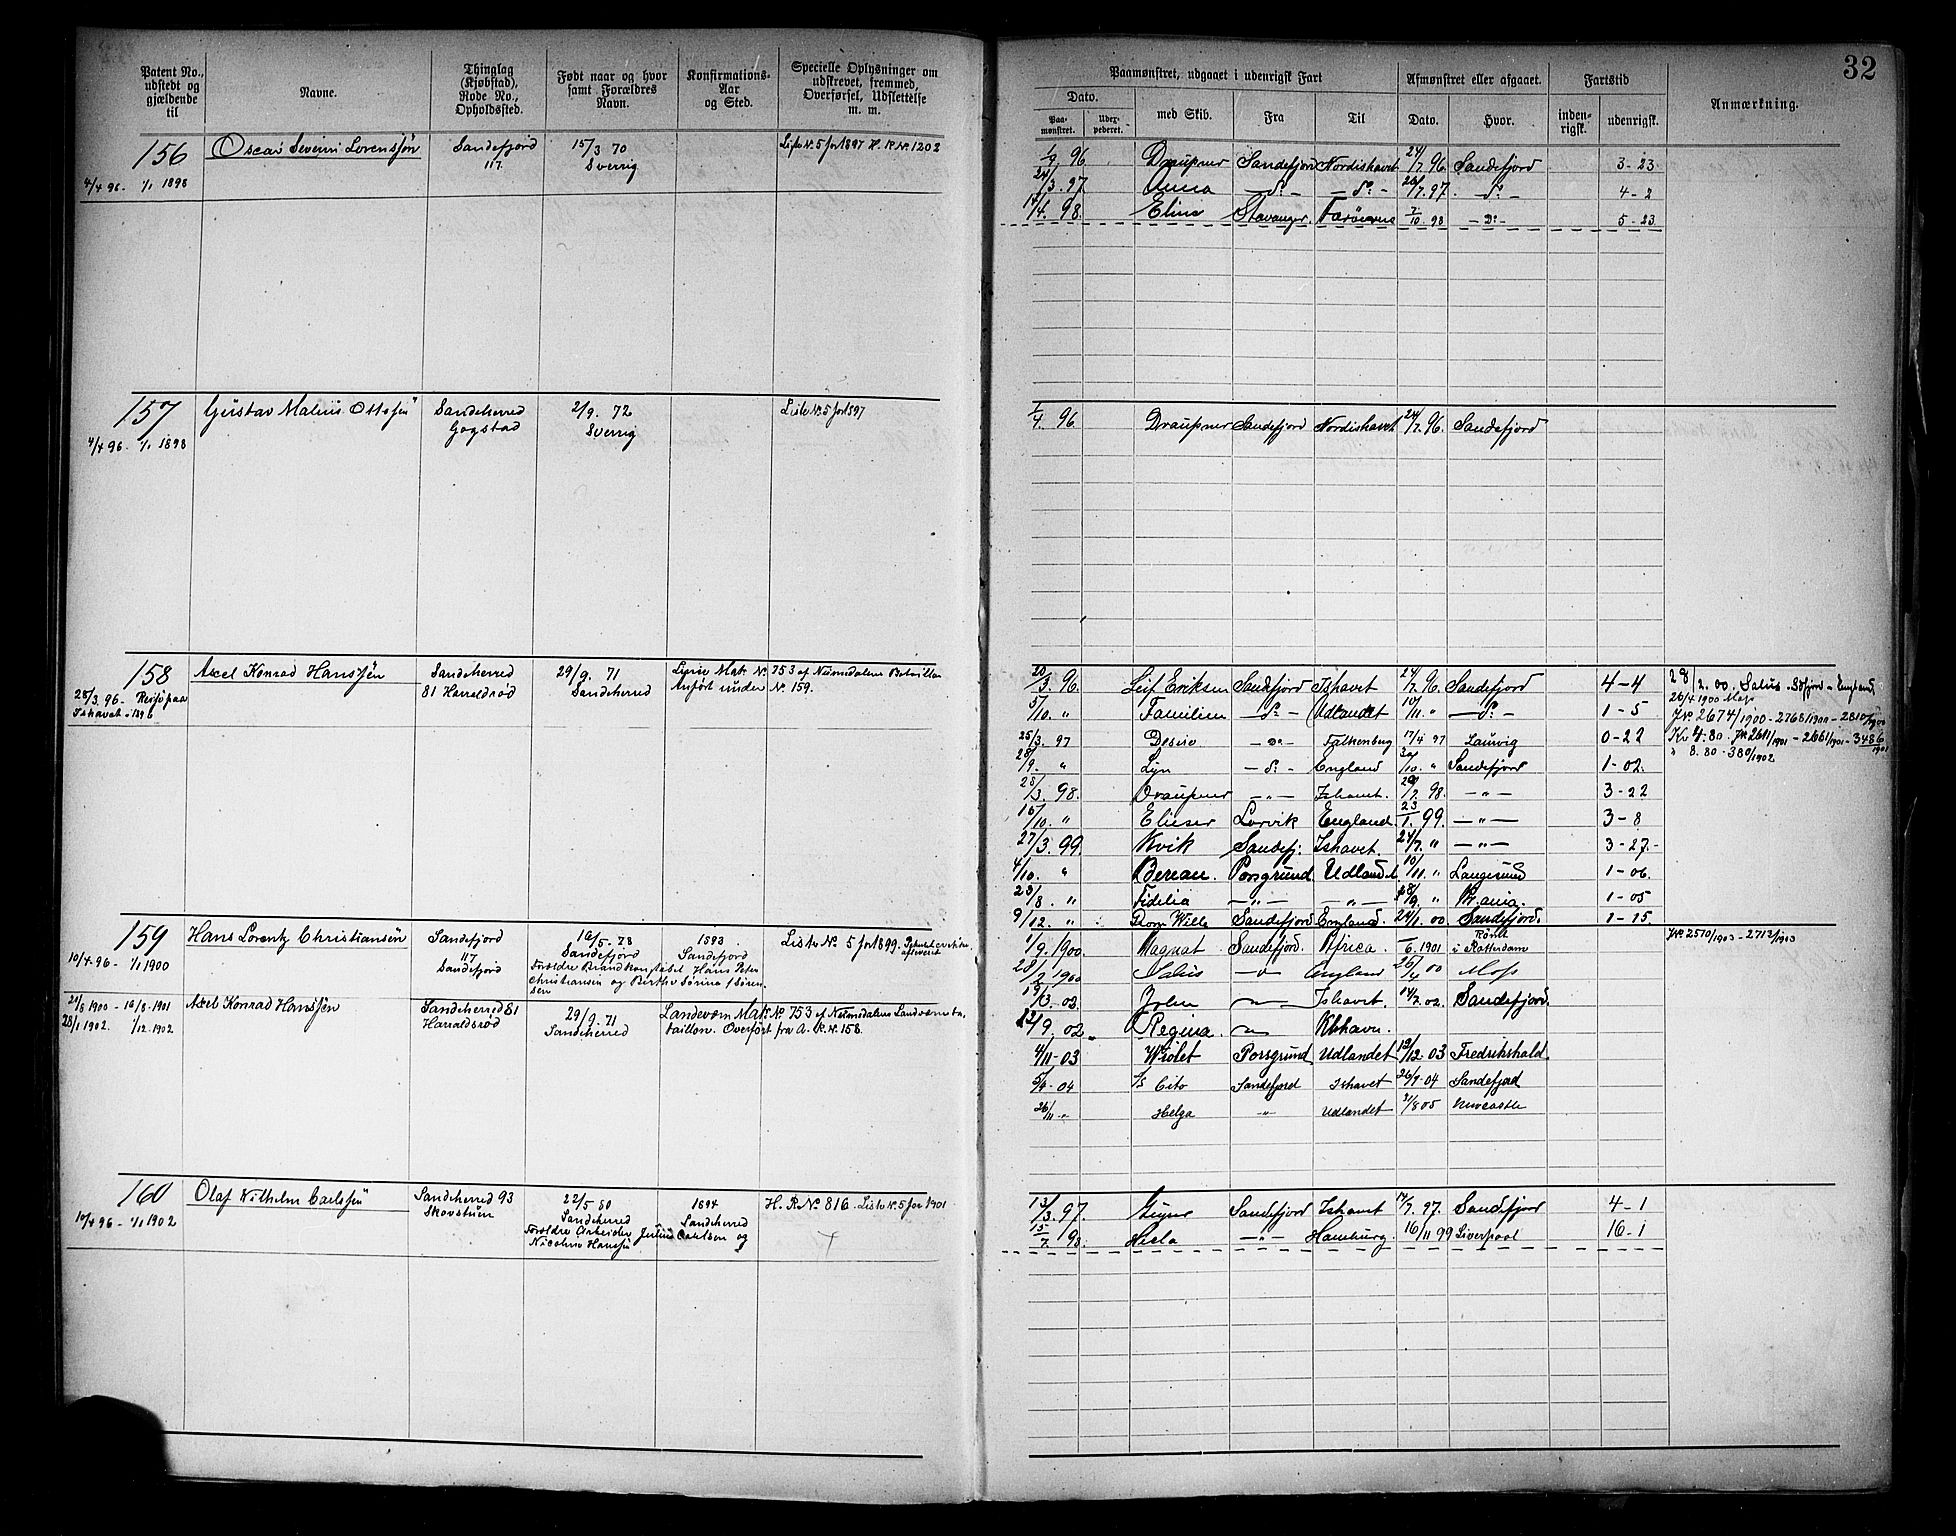 32
Patent No., udstedt og gjældende til
Navne.
Thinglag (Kjøbstad), Rode No., Opholdssted.
Født naar og hvor samt Forældres Navn.
Konfirmations-Aar og Sted.
Specielle Oplysninger om udskrevet, fremmed, Overførsel, Udslettelse m. m.
Paamønstret, udgaaet i udenrigsk Fart
Afmønstret eller afgaaet.
Fartstid
Anmærkning.
Dato.
Paa-mønstret.
med Skib.
Fra
Til
Dato.
Hvor.
inden-rigsk.
udenrigsk.
156 Oscar Severin Lorenssøn Sandefjord 15/3 70 Liste No. 5 for 1897 H. R. No. 1202
117. Sverrig
4/4 96. 1/1 1898
96. Draupner Sandefjord Nordishavet 24/7 96. Sandefjord 3-23
24/3. 97. Anna — do — — do — 26/7. 97. — do — 4-2
14/4. 98. Elina Stavanger. Færöerne 7/10. 98 — Do — 5-23
157 Gustav Malius Ottesen Sandeherred 2/9. 72 Liste No. 5 for 1897
Gogstad Sverrig
4/4 96. 1/1 1898
96. Draupner Sandefjord Nordishavet 24/7. 96. Sandefjord
158 Axel Konrad Hanssen Sandeherred 29/9. 71 Linie Mat. No. 753 af Numedalens Bataillon
81 Haraldsrød Sandeherred Anført under No. 159.
28/3. 96 - Reise paa
Ishavet - 1896
20/3. 96. Leif Eriksen Sandefjord Ishavet 24/7. 96. Sandefjord 4-4
5/10. " Familien — do — Udlandet 10/11. " — do — 1-5
25/3. 97 — Do — Falkenberg 17/4 97 Laurvig 0-22
28/9. " Lyn — do — England 30/10. " Sandefjord 1-02.
25/3. 98. Draupner — " — Ishavet. 29/7. 98. — " — 3-22
15/10. " Elieser Larvik England 23/1. 99. — " — 3-8
27/3. 99. Kvik Sandefj: Ishavet. 24/7. " — " — 3-27-
4/10. " Porsgrund Udlandet 10/11. " Langesund 1-06
23/8. " Fidelia — " — — " — 1-05
9/12. " Sandefjord England. 24/1. 00 Sandefjord. 1-15
28/2. 00. Salus. S.fjord - England,
26/4 1900 Moss
JNo. 2674/1900 - 2768/1900 - 2810/1900
Kr. 4.80. JNo. 2611/1901 - 2661/1901 - 3486/1901
" 8.80 - 380/1902
159 Hans Lorentz Christiansen Sandefjord 16/5. 78 1893. Liste No. 5 for 1899.
117 Sandefjord Sandefjord
10/4 96 - 1/1 1900 Sandefjord Forældre Brandkonstabel Hans Peter
Christiansen og Berthe Sørine Sørensen
21/8 1900 - 16/8 - 1901 Axel Konrad Hanssen Sandeherred 81 29/9. 71 Landeværn Mat. No. 753 af Numedalens Landværnsbataillon. Overført fra A. R. No. 158.
28/1 1902. 1/12. 1902 Haraldsrød Sandeherred
1/9. 1900. Magnat Sandefjord. Africa. /6. 1901 Rømt i Rotterdam JNo. 2570/1903 - 2712/1903
28/2 1900 Salus England 26/4 00 Moss
/3. 02 Ishavet. 14/7. 02. Sandefjord.
/9. 02 Regina Kbhavn.
4/11-03 Wiolet Porsgrund Udlandet 12/12. 03 Fredrikshald
5/4-04 S/S Cito Sandefjord Ishavet 26/9-04 Sandefjord
26/11 - " Helga " Udlandet 31/8 05 Newcastle
160 Olaf Wilhelm Carlssen Sandeherred 93 22/5 80 1894 H. R. No. 816. Liste No. 5 for 1901
Skovstuen Sandeherred Sandeherred
10/4 96 - 1/1 1902 Forældre Arbeider Julius Carlsen og
Nicoline
13/3. 97. Sandefjord Ishavet 17/7. 97. Sandefjord 4-1
15/7. 98. — " — Hamburg. 16/11 99 Liverpool 16-1